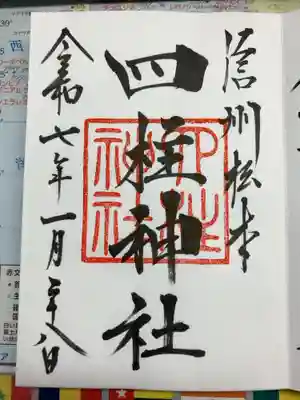 信州松本
四柱神社
令和七年一月二十八日
四柱神社